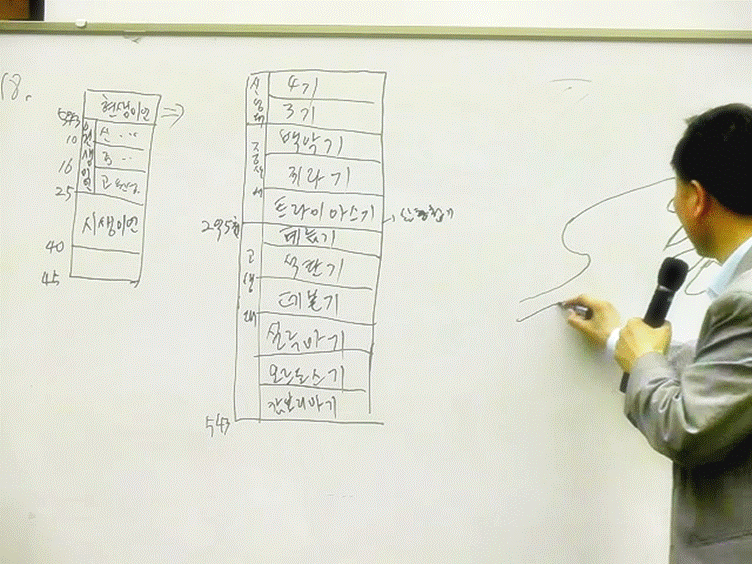 18.
현생이언 ⇒
543
10
16
25
40
45
원생이언
신 〃
중 〃
고원생.
시생이언
신생대
4기
3기
중생대
백악기
쥐라기
트라이아스기
295
고생대
페름기
석탄기
데본기
실루리아기
오르도스기
캄브리아기
543